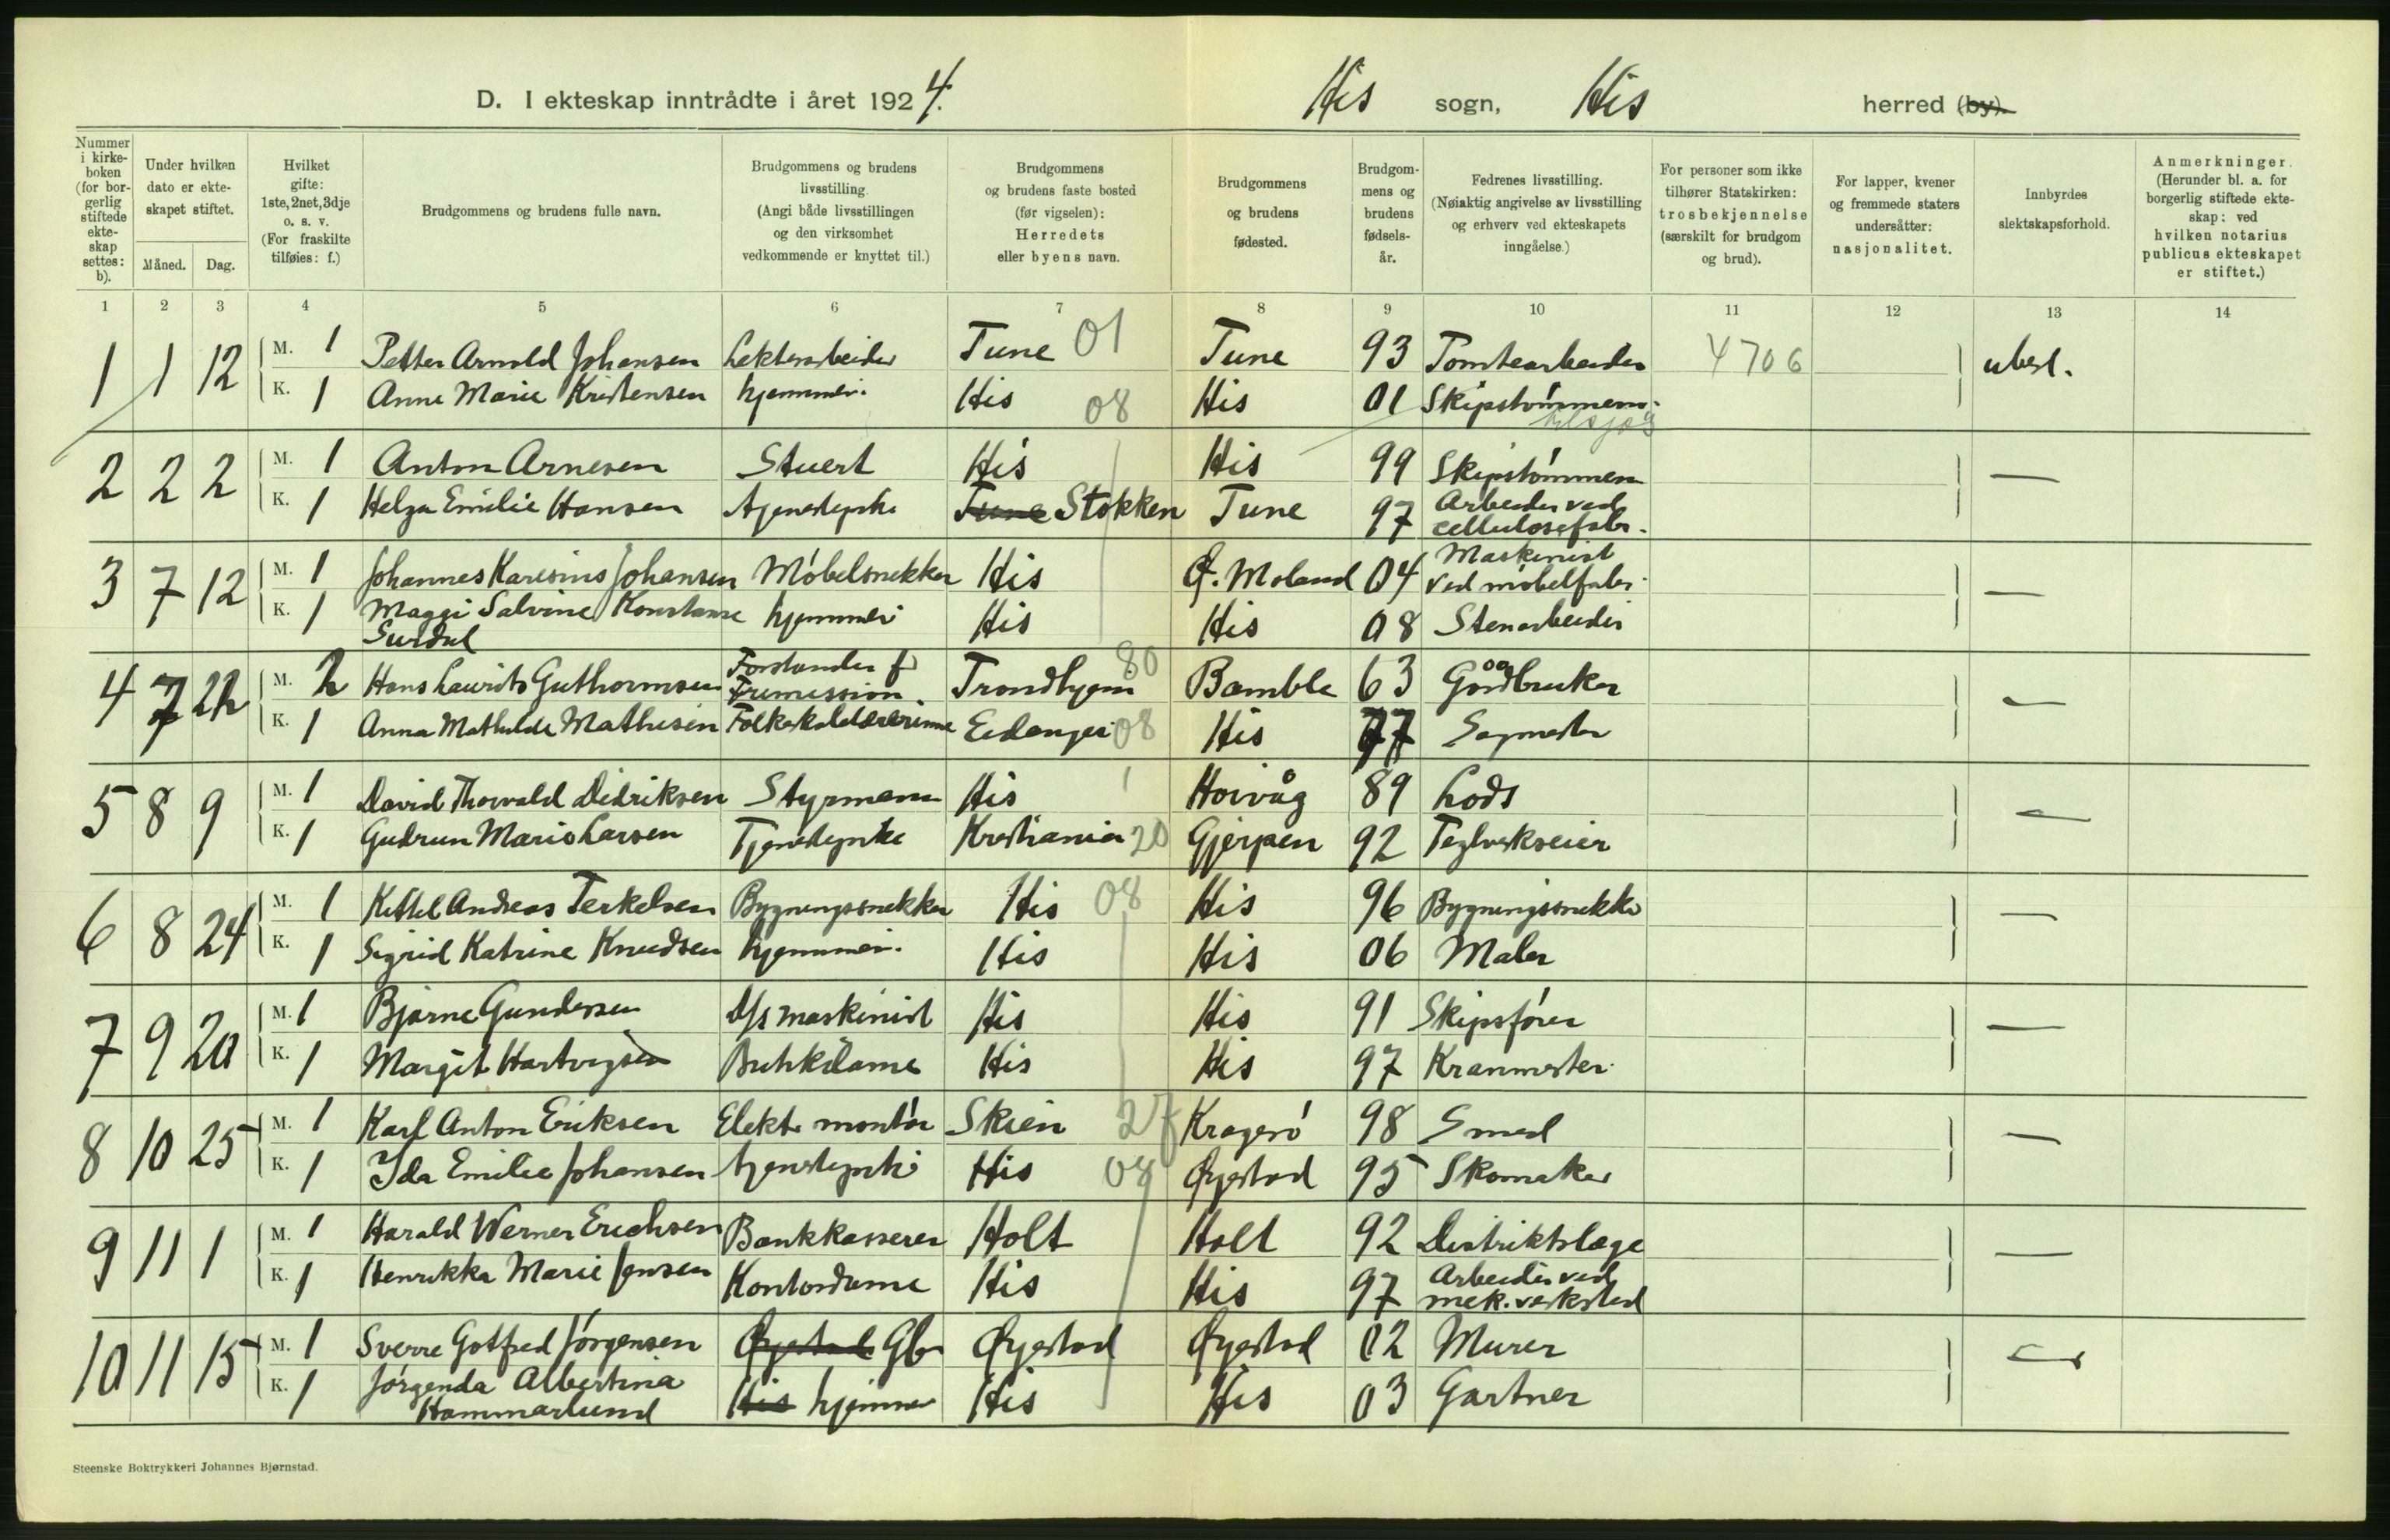 D. I ekteskap inntrådte i året 1924. His sogn, His herred (by).
Nummer i kirkeboken (for borgerlig stiftede ekteskap settes: b).
Under hvilken dato er ekteskapet stiftet.
Måned. Dag.
Hvilket gifte: 1ste, 2net, 3dje o. s. v. (For fraskilte tilføies: f.)
Brudgommens og brudens fulle navn.
Brudgommens og brudens livsstilling. (Angi både livsstillingen og den virksomhet vedkommende er knyttet til.)
Brudgommens og brudens faste bosted (før vigselen): Herredets eller byens navn.
Brudgommens og brudens fødested.
Brudgommens og brudens fødselsår.
Fedrenes livsstilling. (Nøiaktig angivelse av livsstilling og erhverv ved ekteskapets inngåelse.)
For personer som ikke tilhører Statskirken: trosbekjennelse (særskilt for brudgom og brud).
For lapper, kvener og fremmede staters undersåtter: nasjonalitet.
Innbyrdes slektskapsforhold.
Anmerkninger. (Herunder bl. a. for borgerlig stiftede ekteskap: ved hvilken notarius publicus ekteskapet er stiftet.)
1 2 3 4 5 6 7 8 9 10 11 12 13 14
1 1 12 M. 1 Petter Arnold Johansen Lekterarbeider Tune 01 Tune 93 Tomtearbeider 4706 ubesl.
K. 1 Anne Marie Kristensen hjemmev. His 08 His 01 Skipstømmerm.
2 2 2 M. 1 Anton Arnesen Stuert His His 99 Skipstømmerm —
K. 1 Helga Emilie Hansen tjenestepike Tune Stokken Tune 97 Arbeider ved cellulosefabr.
3 7 12 M. 1 Johannes Karesius Johansen Møbelsnekker His Ø. Moland 04 Maskinist ved møbelfabr. —
K. 1 Maggi Salvine Konstanse Surdal hjemmev His His 08 Stenarbeider
4 7 22 M. 2 Hans Laurits Guthormsen Forstander f Frimission Trondhjem 80 Bamble 63 Gårdbruker —
K. 1 Anna Mathilde Mathisen Folkeskolelærerinne Eidanger 08 His 77 Sagmester
5 8 9 M. 1 David Thorvald Didriksen Styrmann His Høivåg 89 Lods —
K. 1 Gudrun Marie Larsen Tjenestepike Kristiania 20 Gjerpen 92 Teglverkseier
6 8 24 M. 1 Kittel Andreas Terkelsen Bygningssnekker His 08 His 96 Bygningssnekker —
K. 1 Sigrid Katrine Knudsen hjemmev. His His 06 Maler
7 9 20 M. 1 Bjarne Gundersen D/s maskinist His His 91 Skipsfører —
K. 1 Margit Hartvigsen Butikkdame His His 97 Kranmester
8 10 25 M. 1 Karl Anton Eriksen Elektr montør Skien 27 Kragerø 98 Smed —
K. 1 Ida Emilie Johansen tjenestepike His 08 Øyestad 95 Skomaker
9 11 1 M. 1 Harald Werner Erichsen Bankkasserer Holt Holt 92 Distriktslæge —
K. 1 Henrikka Marie Jensen Kontordame His His 97 Arbeider ved mek. verksted
10 11 15 M. 1 Sverre Gotfred Jørgensen Øyestad Gbr Øyestad Øyestad 02 Murer —
K. 1 Jørgenda Albertina Hammarlund His hjemmev His His 03 Gartner
Steenske Boktrykkeri Johannes Bjørnstad.